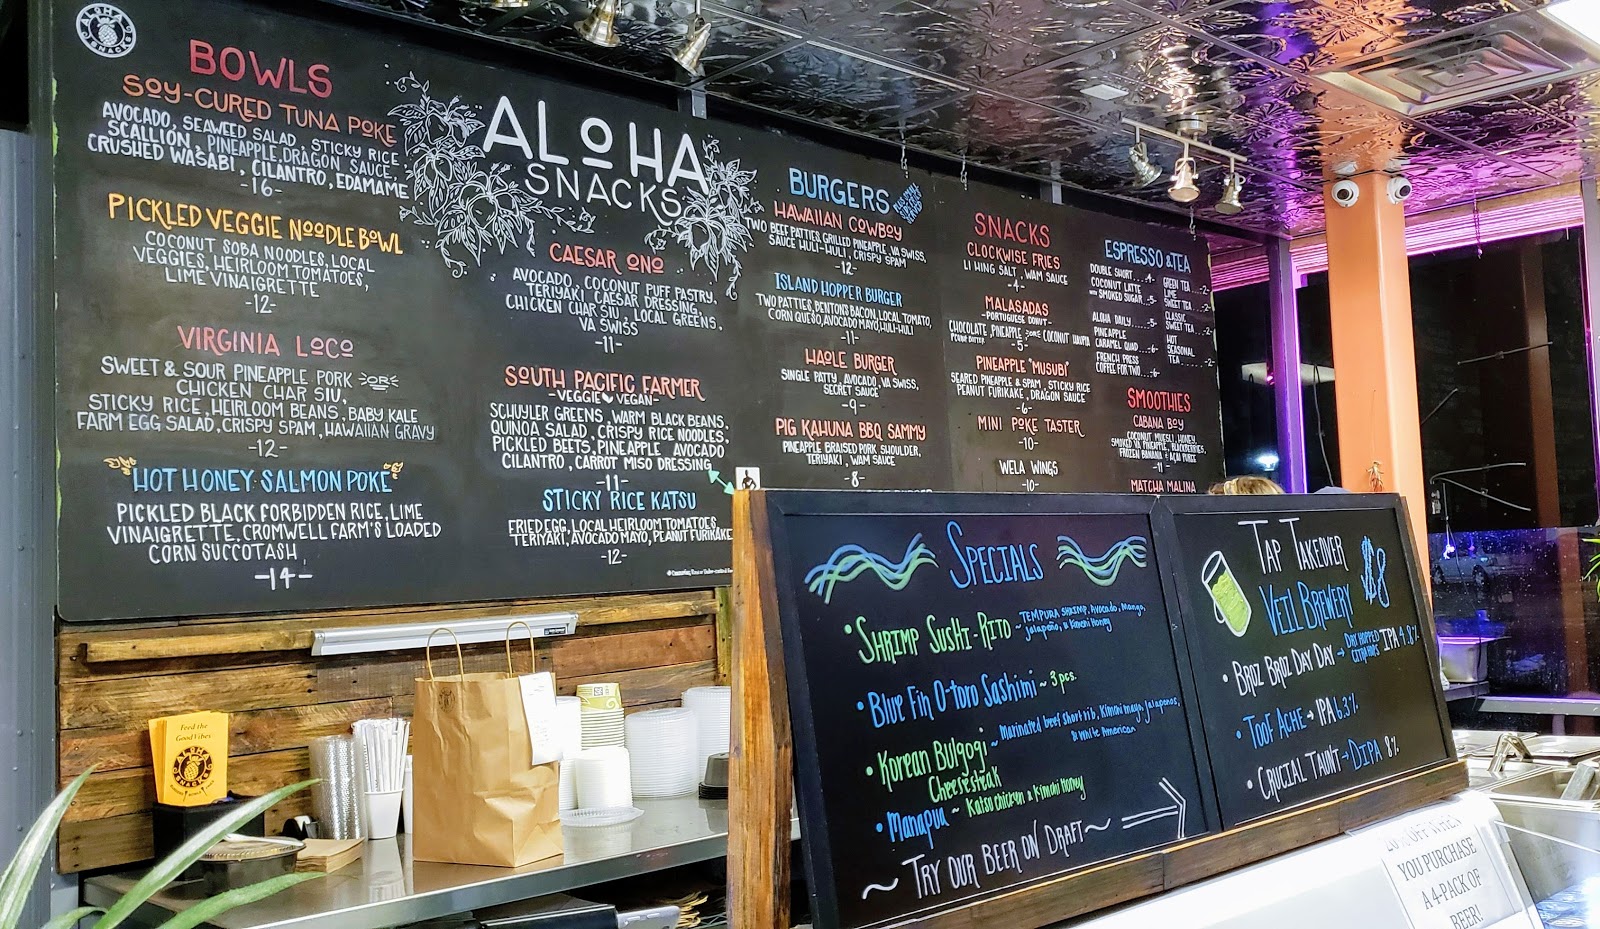 ALOHA
SNACKS
BOWLS
SOY-CURED TUNA POKE
AVOCADO, SEAWEED SALAD, STICKY RICE,
SCALLION, PINEAPPLE, DRAGON SAUCE,
CRUSHED WASABI, CILANTRO, EDAMAME
-16-
PICKLED VEGGIE NOODLE BOWL
COCONUT SOBA NOODLES, LOCAL
VEGGIES, HEIRLOOM TOMATOES,
LIME VINAIGRETTE
-12-
VIRGINIA LOCO
SWEET & SOUR PINEAPPLE PORK OR
CHICKEN CHAR SIU,
STICKY RICE, HEIRLOOM BEANS, BABY KALE
FARM EGG SALAD, CRISPY SPAM, HAWAIIAN GRAVY
-12-
HOT HONEY SALMON POKE
PICKLED BLACK FORBIDDEN RICE, LIME
VINAIGRETTE, CROMWELL FARM'S LOADED
CORN SUCCOTASH
-14-
ALOHA
SNACKS
CAESAR ONO
AVOCADO, COCONUT PUFF PASTRY,
TERIYAKI, CAESAR DRESSING,
CHICKEN CHAR SIU, LOCAL GREENS,
VA SWISS
-11-
SOUTH PACIFIC FARMER
-VEGGIE VEGAN-
SCHUYLER GREENS, WARM BLACK BEANS,
QUINOA SALAD, CRISPY RICE NOODLES,
PICKLED BEETS, PINEAPPLE AVOCADO
CILANTRO, CARROT MISO DRESSING
-11-
STICKY RICE KATSU
FRIED EGG, LOCAL HEIRLOOM TOMATOES,
TERIYAKI, AVOCADO MAYO, PEANUT FURIKAKE
-12-
BURGERS
HAWAIIAN COWBOY
TWO BEEF PATTIES, GRILLED PINEAPPLE, VA SWISS,
SAUCE HULI-HULI, CRISPY SPAM
-12-
ISLAND HOPPER BURGER
TWO PATTIES, BENTONS BACON, LOCAL TOMATO,
CORN QUESO, AVOCADO MAYO, HULI-HULI
-11-
HAOLE BURGER
SINGLE PATTY, AVOCADO, VA SWISS,
SECRET SAUCE
-9-
PIG KAHUNA BBQ SAMMY
PINEAPPLE BRAISED PORK SHOULDER,
TERIYAKI, WAM SAUCE
-8-
SNACKS
CLOCKWISE FRIES
LI HING SALT, WAM SAUCE
-4-
MALASADAS
-PORTUGUESE DONUT-
CHOCOLATE PEANUT BUTTER, PINEAPPLE OR COCONUT HAUPIA
-5-
PINEAPPLE "MUSUBI"
SEARED PINEAPPLE & SPAM, STICKY RICE
PEANUT FURIKAKE, DRAGON SAUCE
-6-
MINI POKE TASTER
-10-
WELA WINGS
-10-
ESPRESSO & TEA
DOUBLE SHORT...4-
COCONUT LATTE
WITH SMOKED SUGAR..5-
ALOHA DAILY.....5-
PINEAPPLE
CARAMEL QUAD...6-
FRENCH PRESS
COFFEE FOR TWO...6-
GREEN TEA
LIME
SWEET TEA ...2-
CLASSIC
SWEET TEA...2-
HOT
SEASONAL
TEA ...2-
SMOOTHIES
CABANA BOY
COCONUT MUESLI, HONEY,
SMOKED VA PINEAPPLE, BLACKBERRIES,
FROZEN BANANA & ACAI PUREE
-11-
MATCHA MALINA
SPECIALS
• SHRIMP SUSHI-RITO ~ TEMPURA SHRIMP, Avocado, Mango,
jalapeño, & Kimchi Honey
• Blue Fin O-toro Sashimi ~ 3 pcs.
• Korean Bulgogi ~ Marinated beef short rib, Kimchi mayo, jalapenos,
& white American
Cheesesteak
• Manapua ~ Katsu chicken & Kimchi Honey
~ TRY OUR BEER ON DRAFT ~
TAP TAKEOVER
VEIL BREWERY $8
• BROZ BROZ DAY DAY → DRY HOPPED
CITRA HOPS IPA 4.8%
• TOOF ACHE → IPA 6.3%
• CRUCIAL TAUNT → DIPA 8%
Feed the
Good Vibes
ALOHA
SNACKS
20% OFF WHEN
YOU PURCHASE
A 4-PACK OF
BEER!